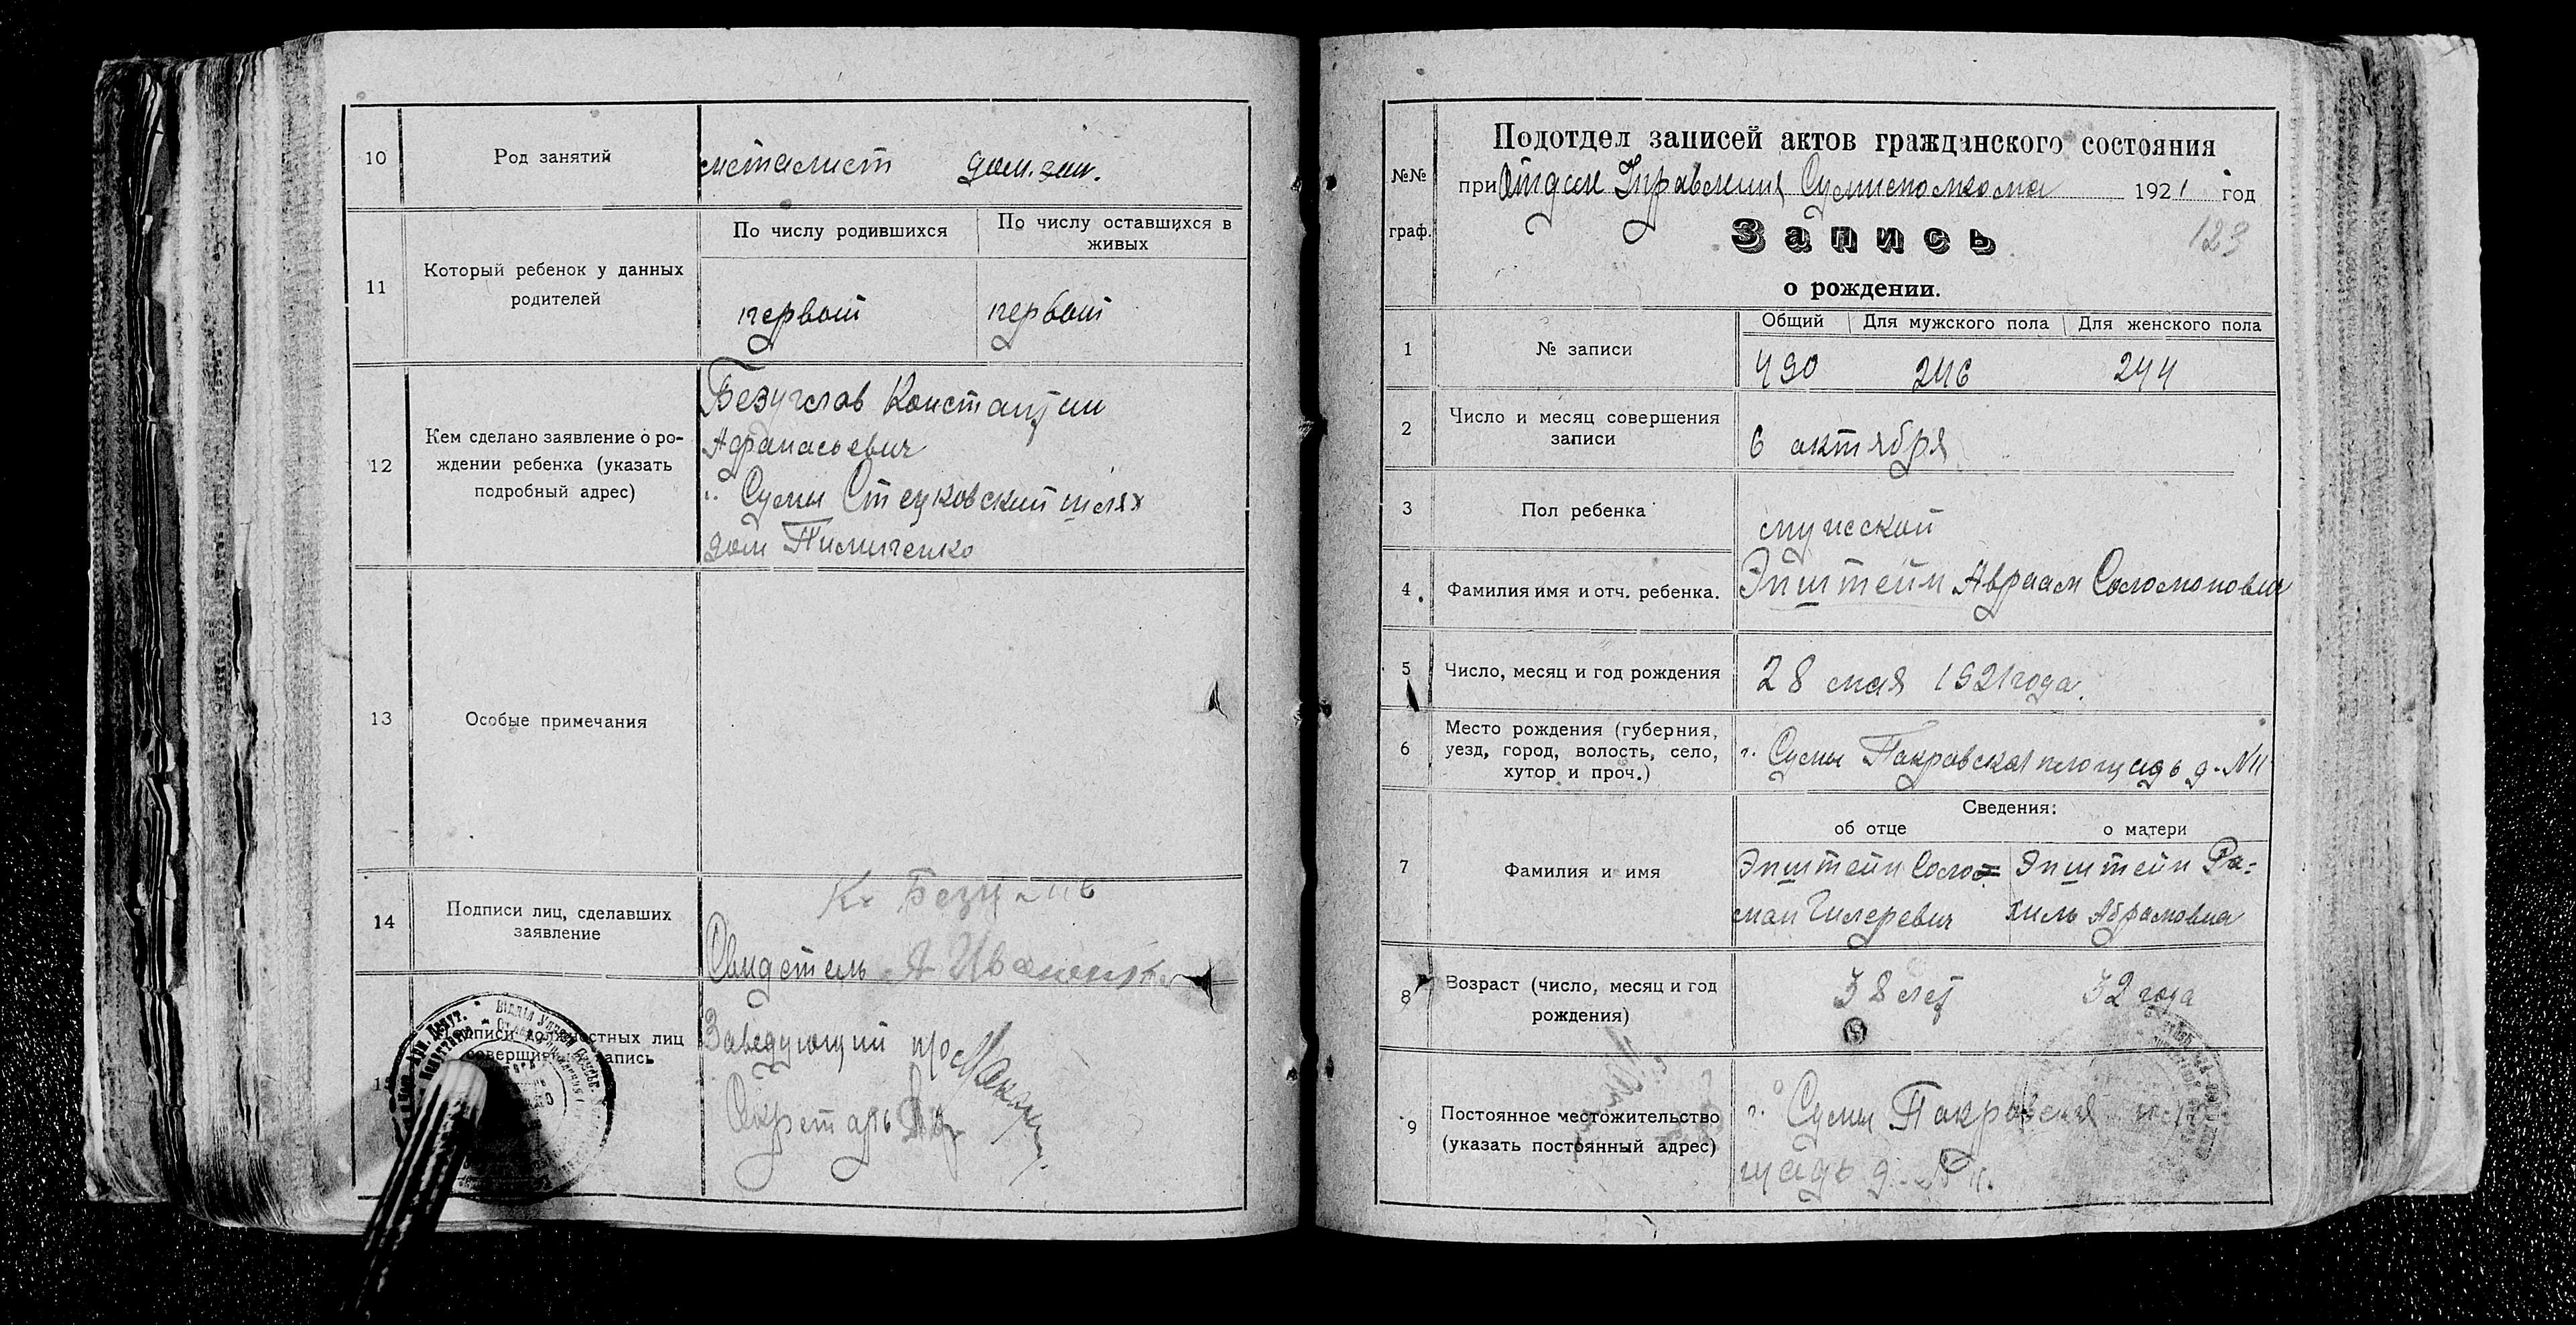 10
Род занятий
металист дом. зан.
11
Который ребенок у данных
родителей
По числу родившихся
По числу оставшихся в
живых
первый
первый
12
Кем сделано заявление о ро-
ждении ребенка (указать
подробный адрес)
Безуглов Константин
Афанасьевич
г. Сумы Стецковский шлях
дом Тимченко
13
Особые примечания
14
Подписи лиц, сделавших
заявление
К. Безуглов
Свидетель А Иваненко
Подписи должностных лиц
совершивших запись
Заведующий
Секретарь
№№
граф.
Подотдел записей актов гражданского состояния
при Отделе Управления Сумисполкома 1921 год
Запись
123
о рождении.
1
№ записи
Общий
Для мужского пола
Для женского пола
490
246
244
2
Число и месяц совершения
записи
6 октября
3
Пол ребенка
мужской
4
Фамилия имя и отч. ребенка.
Эпштейн Авраам Соломонович
5
Число, месяц и год рождения
28 мая 1921 года.
6
Место рождения (губерния,
уезд, город, волость, село,
хутор и проч.)
г. Сумы Покровская площадь д. №11
7
Фамилия и имя
Сведения:
об отце
о матери
Эпштейн Соло=
мон Гилеревич
Эпштейн Ра=
хиль Абрамовна
8
Возраст (число, месяц и год
рождения)
38 лет
32 года
9
Постоянное местожительство
(указать постоянный адрес)
г. Сумы Покровская пло
щадь д. №11.